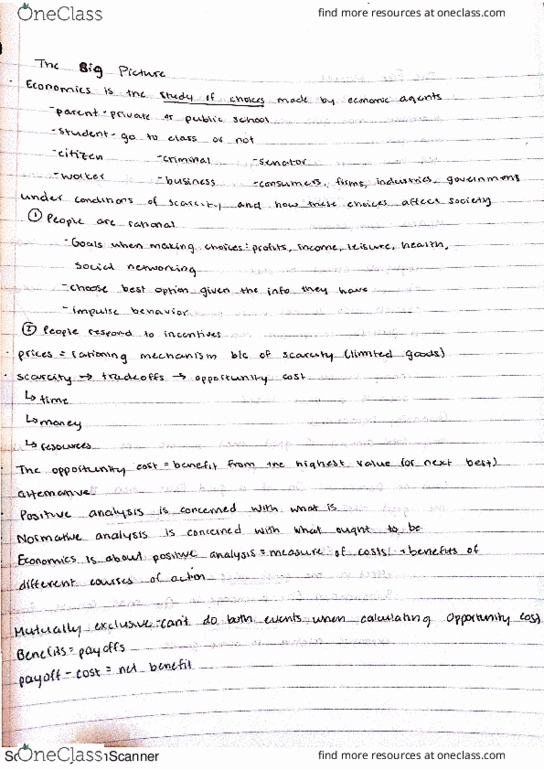 OneClass find more resources at oneclass.com
The Big Picture
Economics is the study of choices made by economic agents
-parent-private or public school
-student-go to class or not
-citizen -criminal -senator
-worker -business -consumers, firms, industries, government
under conditions of scarcity and how these choices affect society
① People are rational
-Goals when making choices: profits, income, leisure, health,
social networking
-choose best option given the info they have
-impulse behavior
② People respond to incentives
prices = rationing mechanism b/c of scarcity (limited goods)
scarcity → tradeoffs → opportunity cost
↳ time
↳ money
↳ resources
The opportunity cost = benefit from the highest value (or next best)
alternative
Positive analysis is concerned with what is
Normative analysis is concerned with what ought to be
Economics is about positive analysis = measure of costs + benefits of
different courses of action
Mutually exclusive-can't do both events when calculating opportunity cost
Benefits = payoffs
payoff - cost = net benefit
OneClass Scanner find more resources at oneclass.com